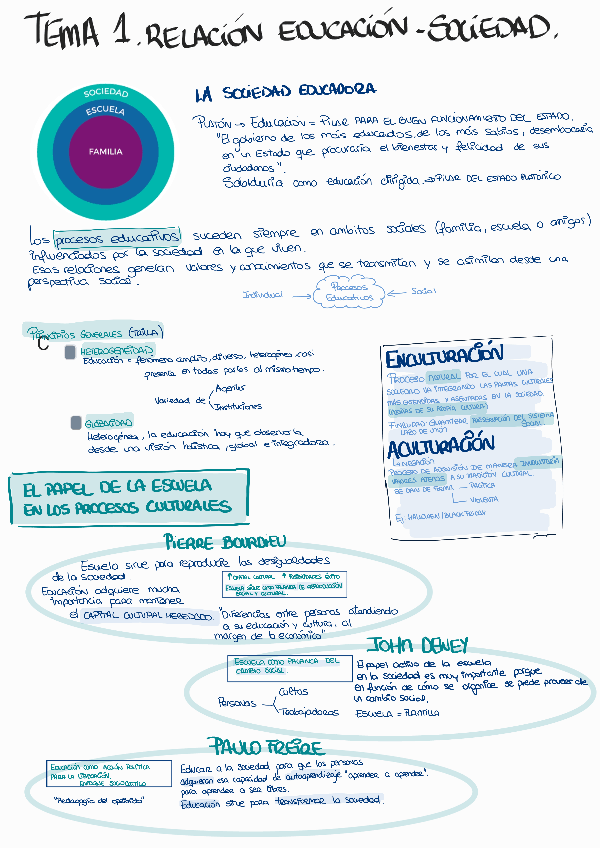 TEMA 1. RELACIÓN EDUCACIÓN-SOCIEDAD.
SOCIEDAD
ESCUELA
FAMILIA
LA SOCIEDAD EDUCADORA
PLATÓN → EDUCACIÓN = PILAR PARA EL BUEN FUNCIONAMIENTO DEL ESTADO.
"El gobierno de los más educados, de los más sabios, desembocaría
en un Estado que procuraría el bienestar y felicidad de sus
ciudadanos".
Sabiduría como educación dirigida. → PILAR DEL ESTADO PLATÓNICO
Los procesos educativos suceden siempre en ámbitos sociales (familia, escuela, o amigos)
influenciados por la sociedad en la que viven.
Esas relaciones generan valores y conocimientos que se transmiten y se asimilan desde una
perspectiva social.
Individual → Procesos Educativos ← Social
PRINCIPIOS GENERALES
HETEROGENEIDAD
Educación = fenómeno amplio, diverso, heterogéneo
presente en todas partes al mismo tiempo.
Variedad de
Agentes
Instituciones
GLOBALIDAD
Heterogénea, la educación hay que observarla
desde una visión holística, global e integradora.
ENCULTURACIÓN
PROCESO NATURAL POR EL CUAL UNA
SOCIEDAD VA INTEGRANDO LAS PAUTAS CULTURALES
MÁS EXTENDIDAS Y ASENTADAS EN LA SOCIEDAD.
FINALIDAD: GARANTIZAR PRESERVACIÓN DEL SISTEMA
SOCIAL
ACULTURACIÓN
PROCESO DE ADQUISICIÓN DE MANERA INVOLUNTARIA
VALORES AJENOS A SU TRADICIÓN CULTURAL.
SE DAN DE FORMA
PACÍFICA
VIOLENTA
Ej. HALLOWEEN/BLACK FRIDAY
EL PAPEL DE LA ESCUELA
EN LOS PROCESOS CULTURALES
PIERRE BOURDIEU
Escuela sirve para reproducir las desigualdades
de la sociedad
EDUCACIÓN adquiere mucha
importancia para mantener
el CAPITAL CULTURAL HEREDADO
↑ CAPITAL CULTURAL ↑ POSIBILIDADES ÉXITO
ESCUELA SIRVE COMO PALANCA DE REPRODUCCIÓN
SOCIAL Y CULTURAL.
"Diferencias entre personas atendiendo
a su educación y cultura, al
margen de lo económico"
JOHN DEWEY
ESCUELA COMO PALANCA DEL
CAMBIO SOCIAL.
Personas
Cultas
Trabajadoras
El papel activo de la escuela
en la sociedad es muy importante porque
en función de cómo se organice se puede proveer de
un cambio social.
ESCUELA = PLANTILLA
PAULO FREIRE
EDUCACIÓN COMO ACCIÓN POLÍTICA
PARA LA LIBERACIÓN.
ENFOQUE SOCIOCRÍTICO
"Pedagogía del oprimido"
Educar a la sociedad para que las personas
adquieran esa capacidad de autoaprendizaje "aprender a aprender".
para aprender a ser libres.
Educación sirve para TRANSFORMAR LA SOCIEDAD.